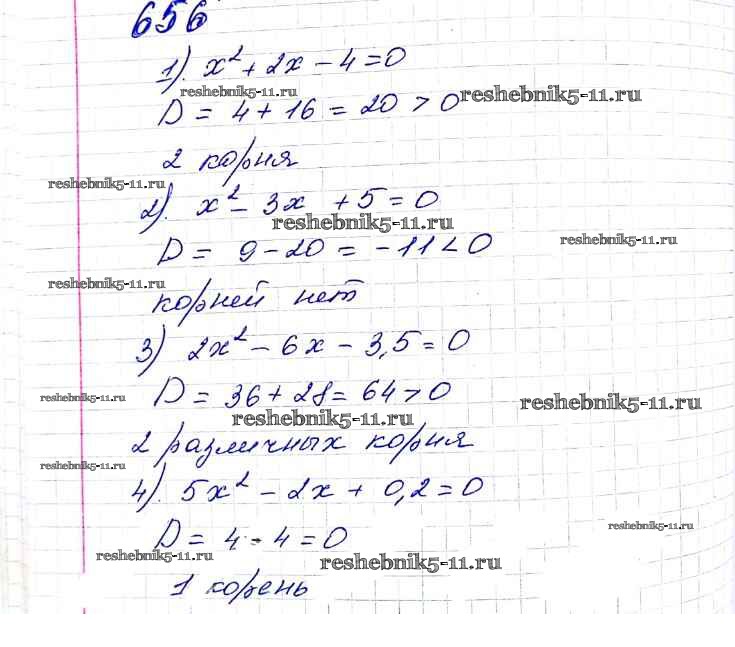 656
1). x² + 2x - 4 = 0
reshebnik5-11.ru
D = 4 + 16 = 20 > 0 reshebnik5-11.ru
2 корня
reshebnik5-11.ru
2). x² - 3x + 5 = 0
reshebnik5-11.ru
D = 9 - 20 = -11 < 0 reshebnik5-11.ru
reshebnik5-11.ru
корней нет
3) 2x² - 6x - 3,5 = 0
D = 36 + 28 = 64 > 0
reshebnik5-11.ru reshebnik5-11.ru
reshebnik5-11.ru
2 различных корня
reshebnik5-11.ru
4). 5x² - 2x + 0,2 = 0
reshebnik5-11.ru
D = 4 - 4 = 0
reshebnik5-11.ru reshebnik5-11.ru
1 корень